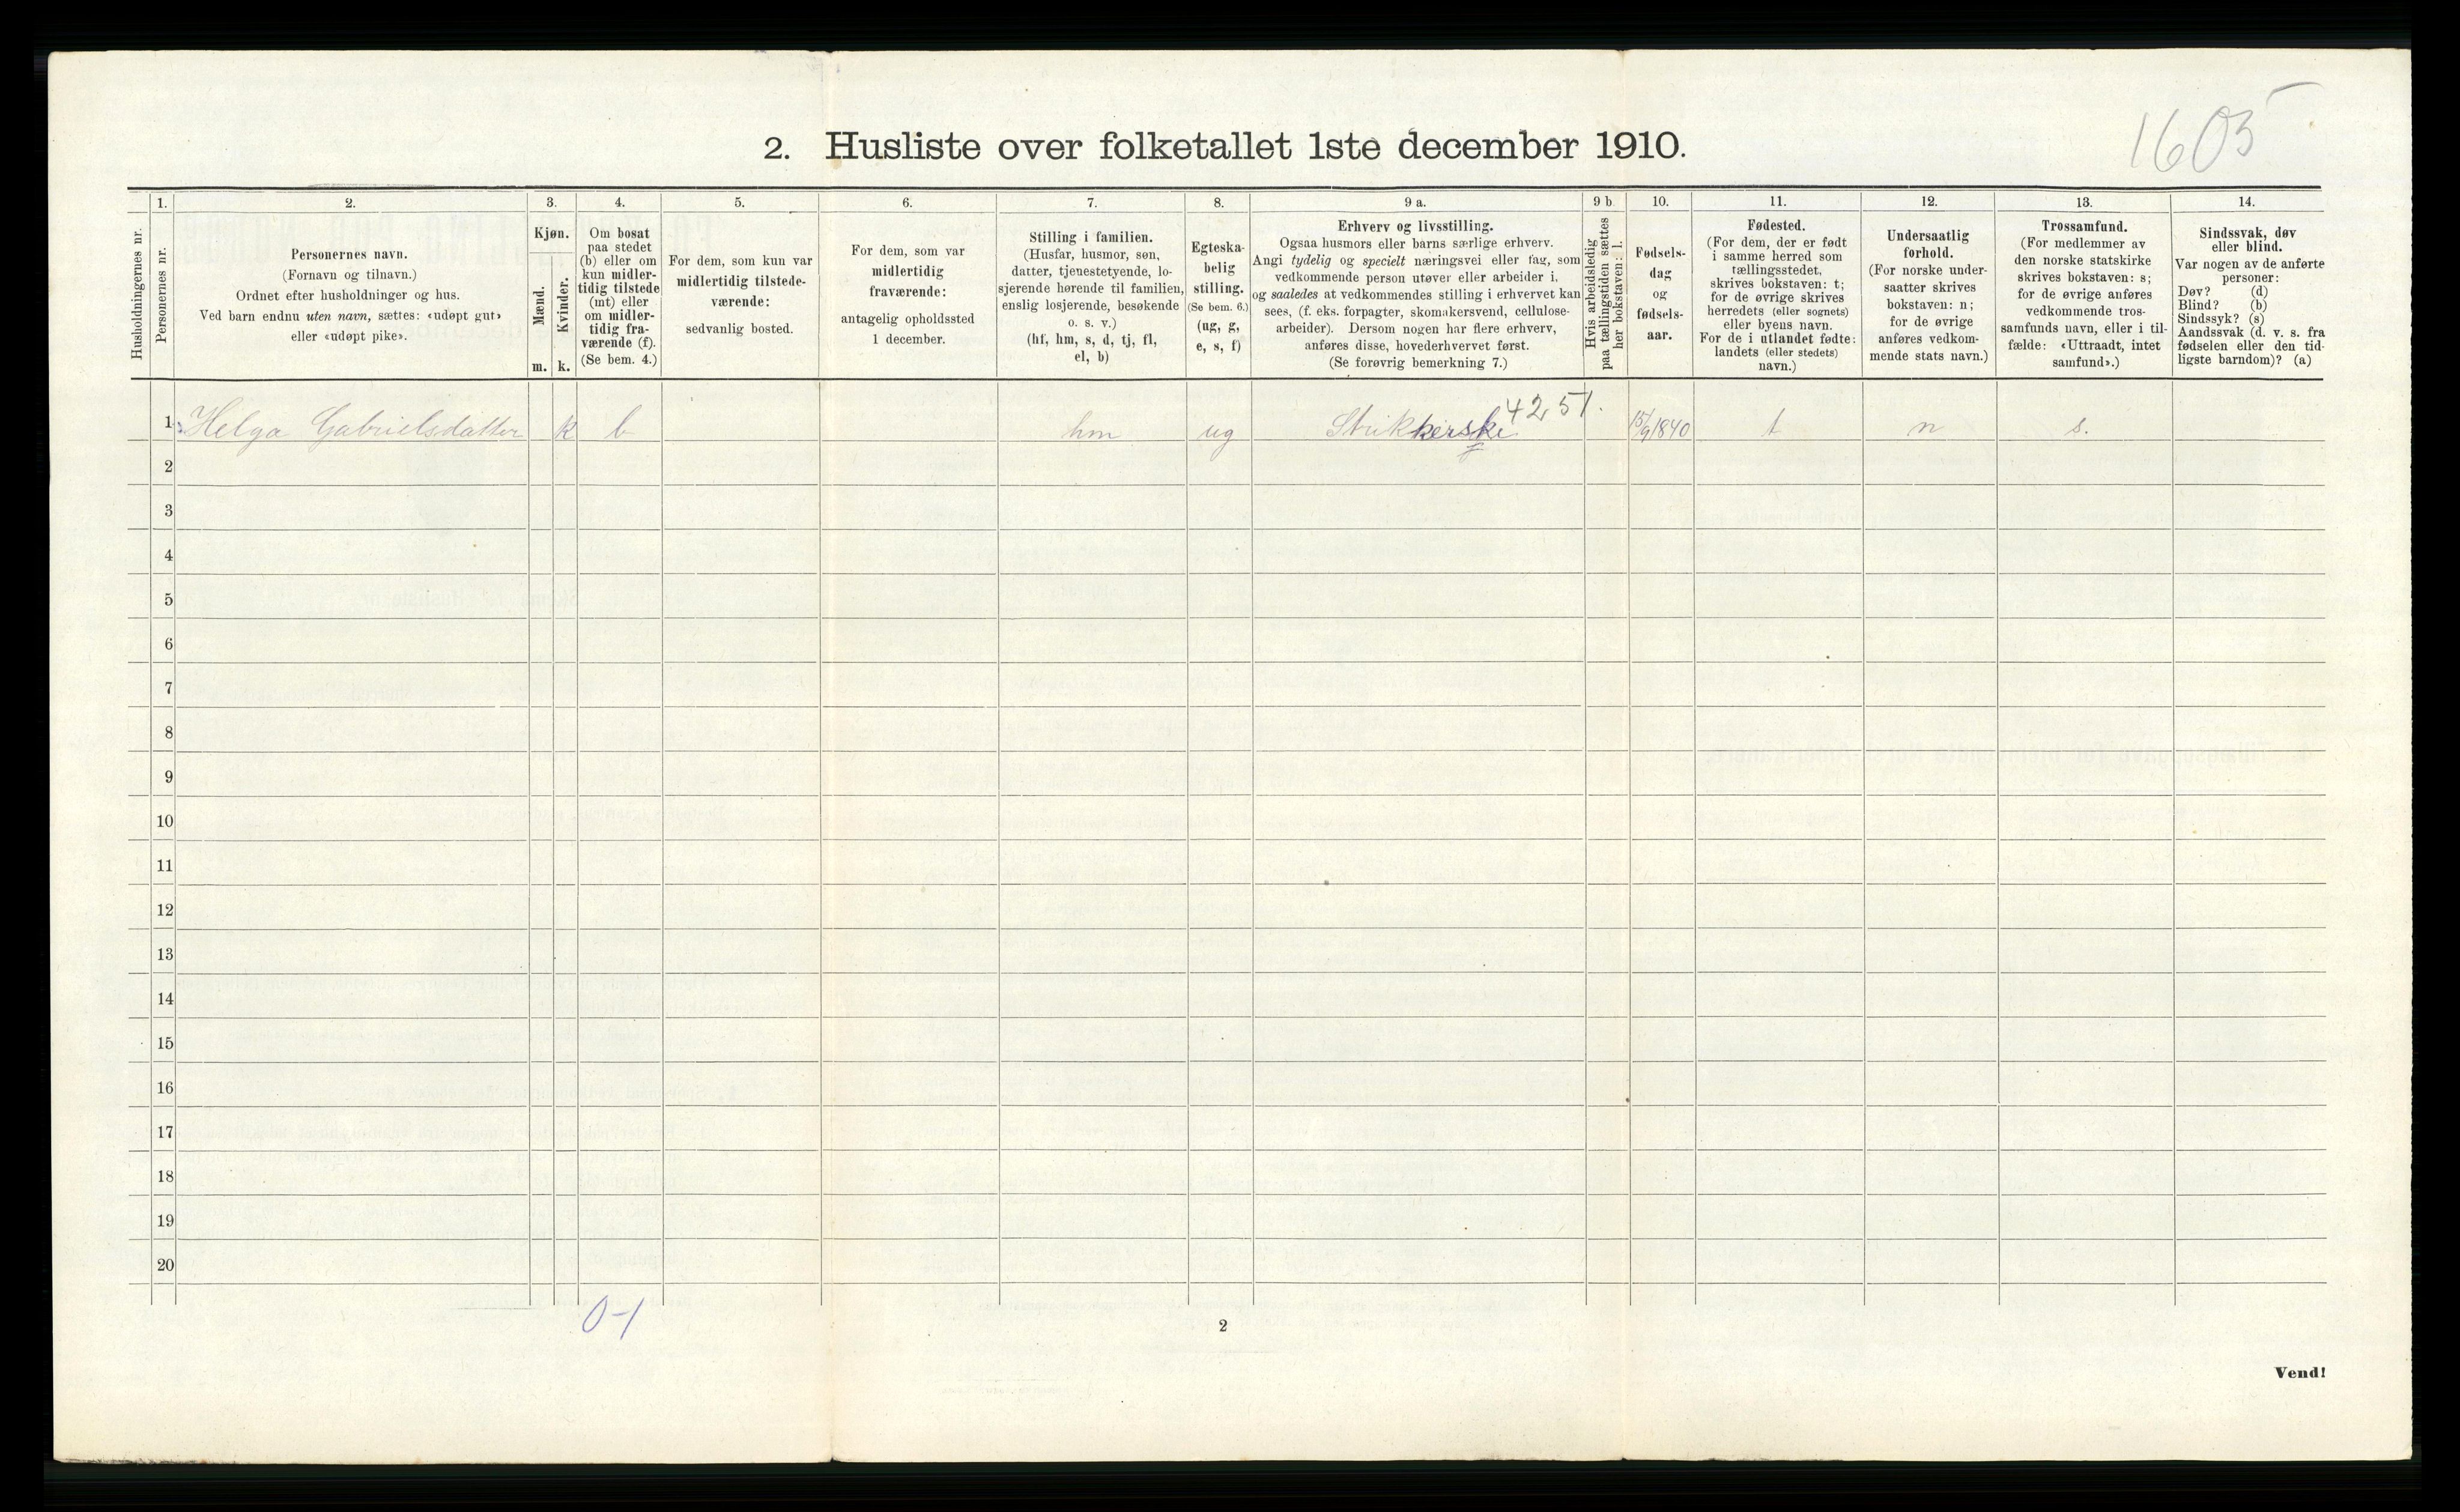 1605
2. Husliste over folketallet 1ste december 1910.
1. 2. 3. 4. 5. 6. 7. 8. 9 a. 9 b 10. 11. 12. 13. 14.
Husholdningernes nr.
Personernes nr.
Personernes navn.
(Fornavn og tilnavn.)
Ordnet efter husholdninger og hus.
Ved barn endnu uten navn, sættes: «udøpt gut»
eller «udøpt pike».
Kjøn.
Mænd.
Kvinder.
m. k.
Om bosat
paa stedet
(b) eller om
kun midler-
tidig tilstede
(mt) eller
om midler-
tidig fra-
værende (f).
(Se bem. 4.)
For dem, som kun var
midlertidig tilstede-
værende:
sedvanlig bosted.
For dem, som var
midlertidig
fraværende:
antagelig opholdssted
1 december.
Stilling i familien.
(Husfar, husmor, søn,
datter, tjenestetyende, lo-
sjerende hørende til familien,
enslig losjerende, besøkende
o. s. v.)
(hf, hm, s, d, tj, fl,
el, b)
Egteska-
belig
stilling.
(Se bem. 6.)
(ug, g,
e, s, f)
Erhverv og livsstilling.
Ogsaa husmors eller barns særlige erhverv.
Angi tydelig og specielt næringsvei eller fag, som
vedkommende person utøver eller arbeider i,
og saaledes at vedkommendes stilling i erhvervet kan
sees, (f. eks. forpagter, skomakersvend, cellulose-
arbeider). Dersom nogen har flere erhverv,
anføres disse, hovederhvervet først.
(Se forøvrig bemerkning 7.)
Hvis arbeidsledig
paa tællingstiden sættes
her bokstaven: l.
Fødsels-
dag
og
fødsels-
aar.
Fødested.
(For dem, der er født
i samme herred som
tællingsstedet,
skrives bokstaven: t;
for de øvrige skrives
herredets (eller sognets)
eller byens navn.
For de i utlandet fødte:
landets (eller stedets)
navn.)
Undersaatlig
forhold.
(For norske under-
saatter skrives
bokstaven: n;
for de øvrige
anføres vedkom-
mende stats navn.)
Trossamfund.
(For medlemmer av
den norske statskirke
skrives bokstaven: s;
for de øvrige anføres
vedkommende tros-
samfunds navn, eller i til-
fælde: «Uttraadt, intet
samfund».)
Sindssvak, døv
eller blind.
Var nogen av de anførte
personer:
Døv? (d)
Blind? (b)
Sindssyk? (s)
Aandssvak (d. v. s. fra
fødselen eller den tid-
ligste barndom)? (a)
4251.
1 Helga Gabrielsdatter k b hm ug Strikkerske 15/9 1840 t n s.
2
3
4
5
6
7
8
9
10
11
12
13
14
15
16
17
18
19
20
0-1
2
Vend!